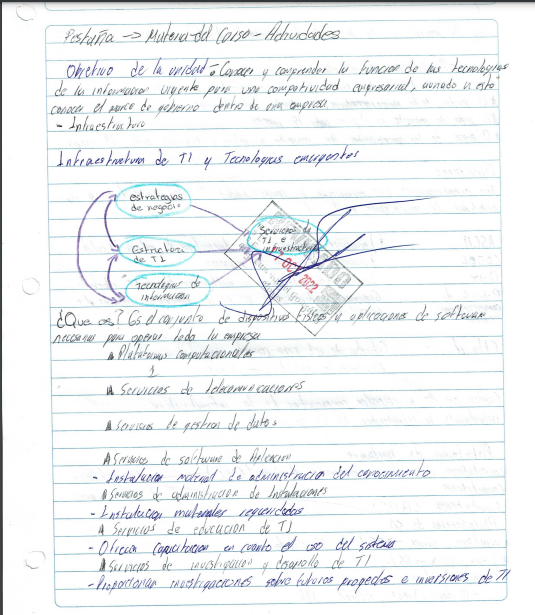 Pestaña → Material del Curso - Actividades
Objetivo de la unidad - Conocer y comprender la funcion de las tecnologias
de la informacion vigente para una competividad empresarial, aunado a esto
conocer el marco de gobierno dentro de una empresa
- Infraestructura
Infraestructura de TI y Tecnologias emergentes
estrategias
de negocio
Servicios de
TI e
infraestructura
Estructura
de TI
OCT 2022
Tecnologias de
informacion
¿Que es? Es el conjunto de dispositivos fisicos y aplicaciones de software
necesarias para operar toda la empresa
Plataformas computacionales
1
Servicios de telecomunicaciones
Servicios de gestion de datos
Servicios de software de Aplicacion
- Instalacion material de administracion del conocimiento
Servicios de administracion de Instalaciones
- Instalacion materiales requeridos
Servicios de educacion de TI
- Ofrecen capacitacion en cuanto el uso del sistema
Servicios de investigacion y desarollo de TI
- Proporcionan investigaciones sobre futuros proyectos e inversiones de TI